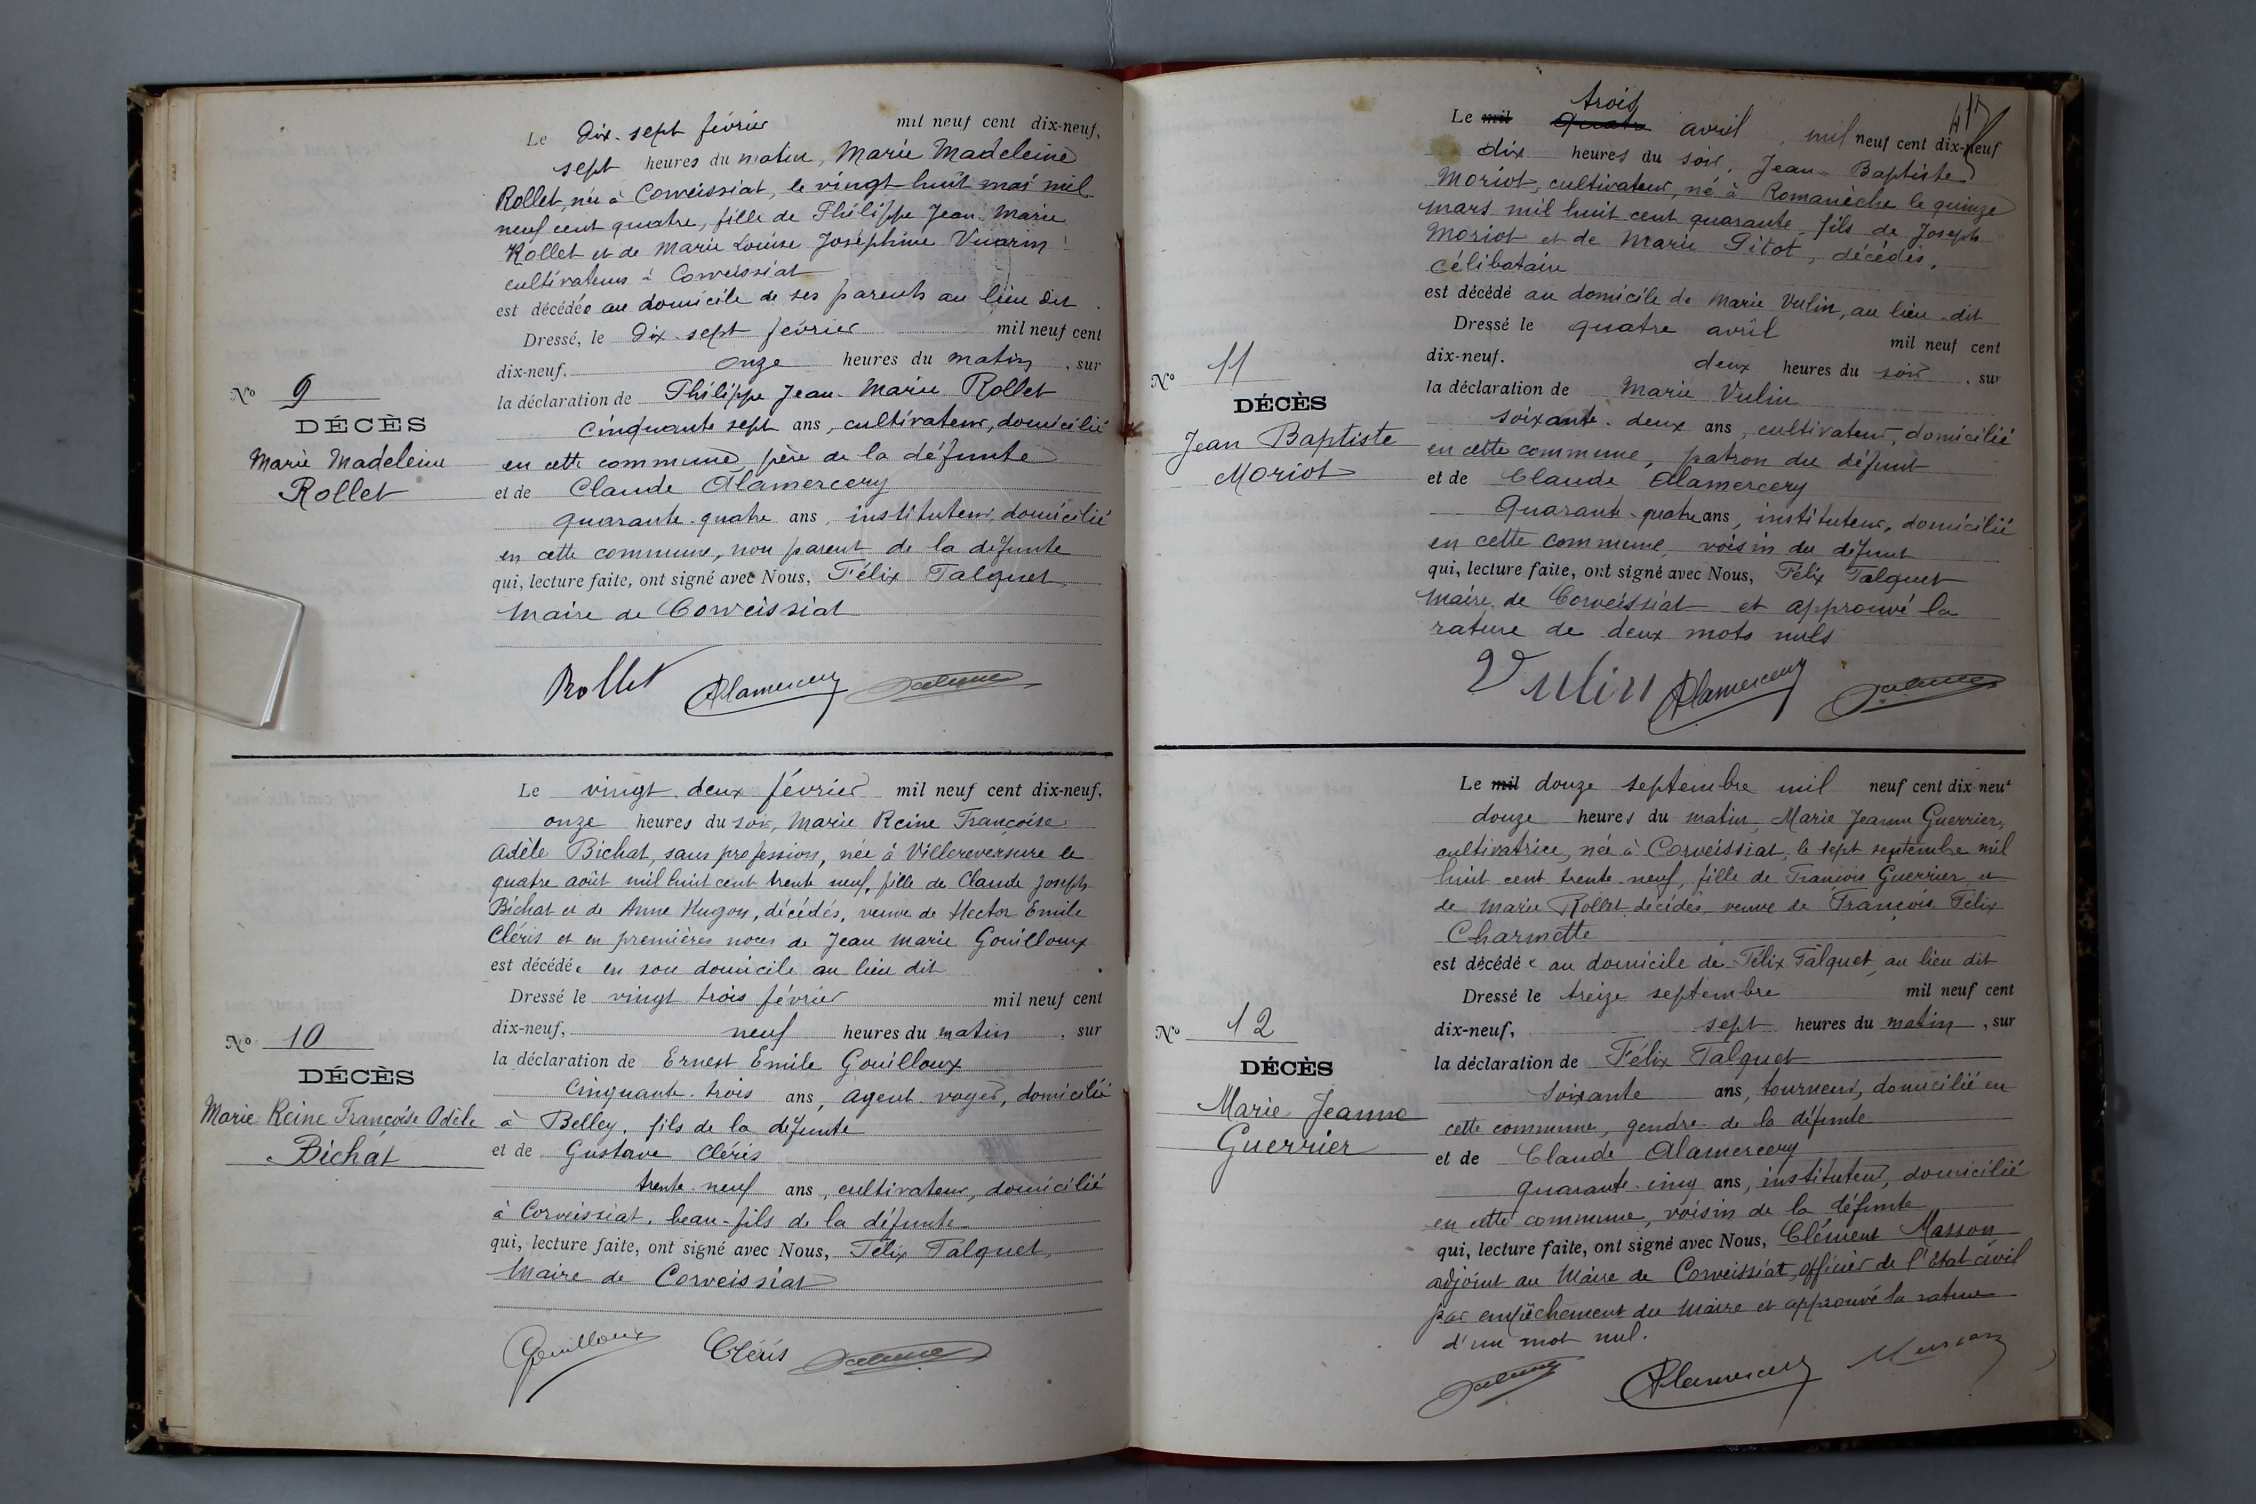 Le dix-sept février mil neuf cent dix-neuf,
sept heures du matin, Marie Madeleine
Rollet, née à Corveissiat, le vingt-huit mai mil
neuf cent quatre, fille de Philippe Jean-Marie
Rollet et de Marie Louise Joséphine Vuarin
cultivateurs à Corveissiat
est décédée au domicile de ses parents au lieu dit
Dressé, le dix-sept février mil neuf cent
dix-neuf, onze heures du matin, sur
la déclaration de Philippe Jean-Marie Rollet
cinquante sept ans, cultivateur, domicilié
en cette commune, père de la défunte
et de Claude Alamercery
quarante-quatre ans, instituteur, domicilié
en cette commune, non parent de la défunte
qui, lecture faite, ont signé avec Nous, Félix Talquet,
Maire de Corveissiat
Rollet Alamercery Talquet
No 9
DÉCÈS
Marie Madeleine
Rollet
Le vingt-deux février mil neuf cent dix-neuf,
onze heures du soir, Marie Reine Françoise
Adèle Bichat, sans profession, née à Villereversure le
quatre août mil huit cent trente neuf, fille de Claude Joseph
Bichat et de Anne Hugon, décédés, veuve de Hector Emile
Cléris et en premières noces de Jean Marie Gouilloux
est décédée en son domicile au lieu dit
Dressé le vingt-trois février mil neuf cent
dix-neuf, neuf heures du matin, sur
la déclaration de Ernest Emile Gouilloux
cinquante-trois ans, agent-voyer, domicilié
à Belley, fils de la défunte
et de Gustave Cléris
trente-neuf ans, cultivateur, domicilié
à Corveissiat, beau-fils de la défunte
qui, lecture faite, ont signé avec Nous, Félix Talquet,
Maire de Corveissiat
Gouilloux Cléris Talquet
No 10
DÉCÈS
Marie Reine Françoise Adèle
Bichat
417
trois
Le mil quatre avril, mil neuf cent dix-neuf
dix heures du soir, Jean-Baptiste
Moriot, cultivateur, né à Romanèche le quinze
mars mil huit cent quarante, fils de Joseph
Moriot et de Marie Pitot, décédés,
célibataire
est décédé au domicile de Marie Vulin, au lieu-dit
Dressé le quatre avril mil neuf cent
dix-neuf. deux heures du soir, sur
la déclaration de Marie Vulin
soixante-deux ans, cultivateur, domicilié
en cette commune, patron du défunt
et de Claude Alamercery
Quarante-quatre ans, instituteur, domicilié
en cette commune, voisin du défunt
qui, lecture faite, ont signé avec Nous, Félix Talquet
Maire de Corveissiat et approuvé la
rature de deux mots nuls
Vulin Alamercery Talquet
No 11
DÉCÈS
Jean Baptiste
Moriot
Le mil douze septembre mil neuf cent dix neuf
douze heures du matin, Marie Jeanne Guerrier,
cultivatrice, née à Corveissiat, le sept septembre mil
huit cent trente-neuf, fille de François Guerrier et
de Marie Rollet décédés, veuve de François Félix
Charmette
est décédée au domicile de Félix Talquet, au lieu dit
Dressé le treize septembre mil neuf cent
dix-neuf, sept heures du matin, sur
la déclaration de Félix Talquet
soixante ans, tourneur, domicilié en
cette commune, gendre de la défunte
et de Claude Alamercery
quarante-cinq ans, instituteur, domicilié
en cette commune, voisin de la défunte
qui, lecture faite, ont signé avec Nous, Clément Masson
adjoint au Maire de Corveissiat, officier de l'Etat civil
par empêchement du Maire et approuvé la rature
d'un mot nul.
Talquet Alamercery Masson
No 12
DÉCÈS
Marie Jeanne
Guerrier